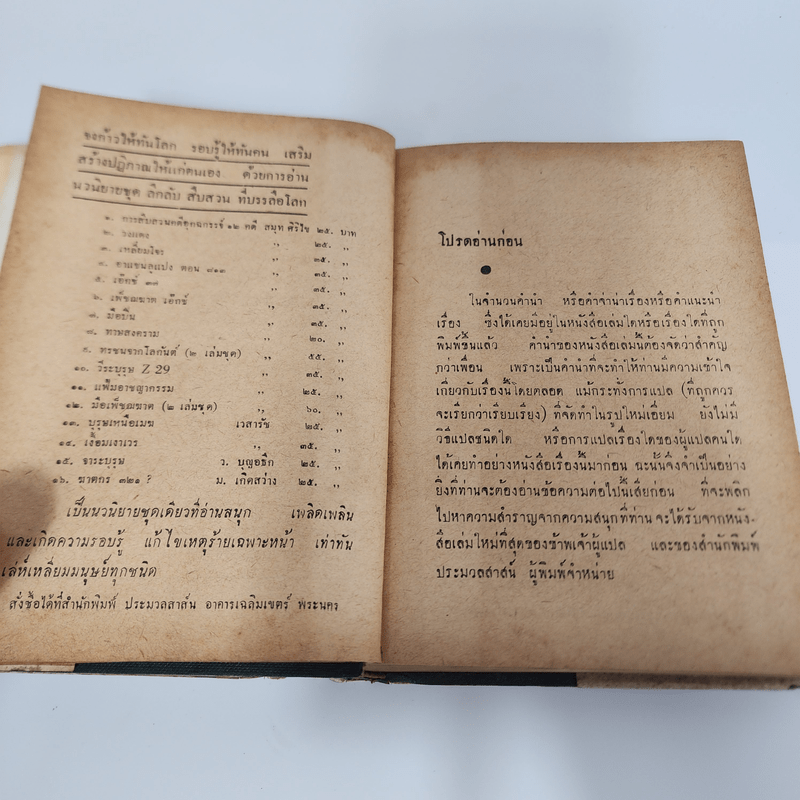 จงก้าวให้ทันโลก รอบรู้ให้ทันคน เสริม
สร้างปฏิภาณให้แก่ตนเอง ด้วยการอ่าน
นวนิยายชุด ลึกลับ สืบสวน ที่บรรลือโลก
๑. การสืบสวนคดีอุกฉกรรจ์ ๑๒ คดี สมุท ศิริไข ๒๕. บาท
๒. วงแดง ,, ๒๕. ,,
๓. เหลี่ยมโจร ,, ๒๕. ,,
๔. อาแซนลูแปง ตอน ๘๑๓ ,, ๓๕. ,,
๕. เอ๊กซ์ ,, ๓๕. ,,
๖. เพ็ชฌฆาต เอ๊กซ์ ,, ๓๕. ,,
๗. มือปืน ,, ๓๕. ,,
๘. ทาษสงคราม ,, ๒๐. ,,
๙. ทรชนจากโลกันต์ (๒ เล่มชุด) ,, ๕๕. ,,
๑๐. วีระบุรุษ Z 29 ,, ๓๕. ,,
๑๑. แฟ้มอาชญากรรม ,, ๒๕. ,,
๑๒. มือเพ็ชฌฆาต (๒ เล่มชุด) ,, ๖๐. ,,
๑๓. บุรุษเหนือเมฆ เวสารัช ๒๕. ,,
๑๔. เงื้อมเงาเวร ,, ๓๕. ,,
๑๕. จาระบุรุษ ว. บุญอธิก ๒๕. ,,
๑๖. ฆาตกร ๓๒๑ ? ม. เกิดสว่าง ๒๕. ,,
เป็นนวนิยายชุดเดียวที่อ่านสนุก เพลิดเพลิน
และเกิดความรอบรู้ แก้ไขเหตุร้ายเฉพาะหน้า เท่าทัน
เล่ห์เหลี่ยมมนุษย์ทุกชนิด
สั่งซื้อได้ที่สำนักพิมพ์ ประมวลสาส์น อาคารเฉลิมเขตร์ พระนคร
โปรดอ่านก่อน
ในจำนวนคำนำ หรือคำจ่าน่าเรื่องหรือคำแนะนำ
เรื่อง ซึ่งได้เคยมีอยู่ในหนังสือเล่มใดหรือเรื่องใดที่ถูก
พิมพ์ขึ้นแล้ว คำนำของหนังสือเล่มนี้ต้องจัดว่าสำคัญ
กว่าเพื่อน เพราะเป็นคำนำที่จะทำให้ท่านมีความเข้าใจ
เกี่ยวกับเรื่องนี้โดยตลอด แม้กระทั่งการแปล (ที่ถูกควร
จะเรียกว่าเรียบเรียง) ที่จัดทำในรูปใหม่เอี่ยม ยังไม่มี
วิธีแปลชนิดใด หรือการแปลเรื่องใดของผู้แปลคนใด
ได้เคยทำอย่างหนังสือเรื่องนี้มาก่อน ฉะนั้นจึงจำเป็นอย่าง
ยิ่งที่ท่านจะต้องอ่านข้อความต่อไปนี้เสียก่อน ที่จะพลิก
ไปหาความสำราญจากความสนุกที่ท่านจะได้รับจากหนัง-
สือเล่มใหม่ที่สุดของข้าพเจ้าผู้แปล และของสำนักพิมพ์
ประมวลสาส์น ผู้พิมพ์จำหน่าย